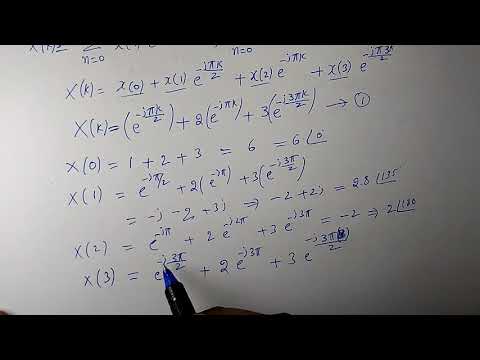 n=0 n=0
X(k) = x(0) + x(1) e^{-jπk/2} + x(2) e^{-jπk} + x(3) e^{-jπ3k/2}
X(k) = (e^{-jπk/2}) + 2(e^{-jπk}) + 3(e^{-j3πk/2}) → ①
X(0) = 1 + 2 + 3 = 6 = 6∠0
X(1) = e^{-jπ/2} + 2(e^{-jπ}) + 3(e^{-j3π/2})
= -j -2 +3j → -2+2j = 2.8∠135
X(2) = e^{-jπ} + 2 e^{-j2π} + 3 e^{-j3π} = -2 → 2∠180
X(3) = e^{-j3π/2} + 2 e^{-j3π} + 3 e^{-j3π(3)/2}